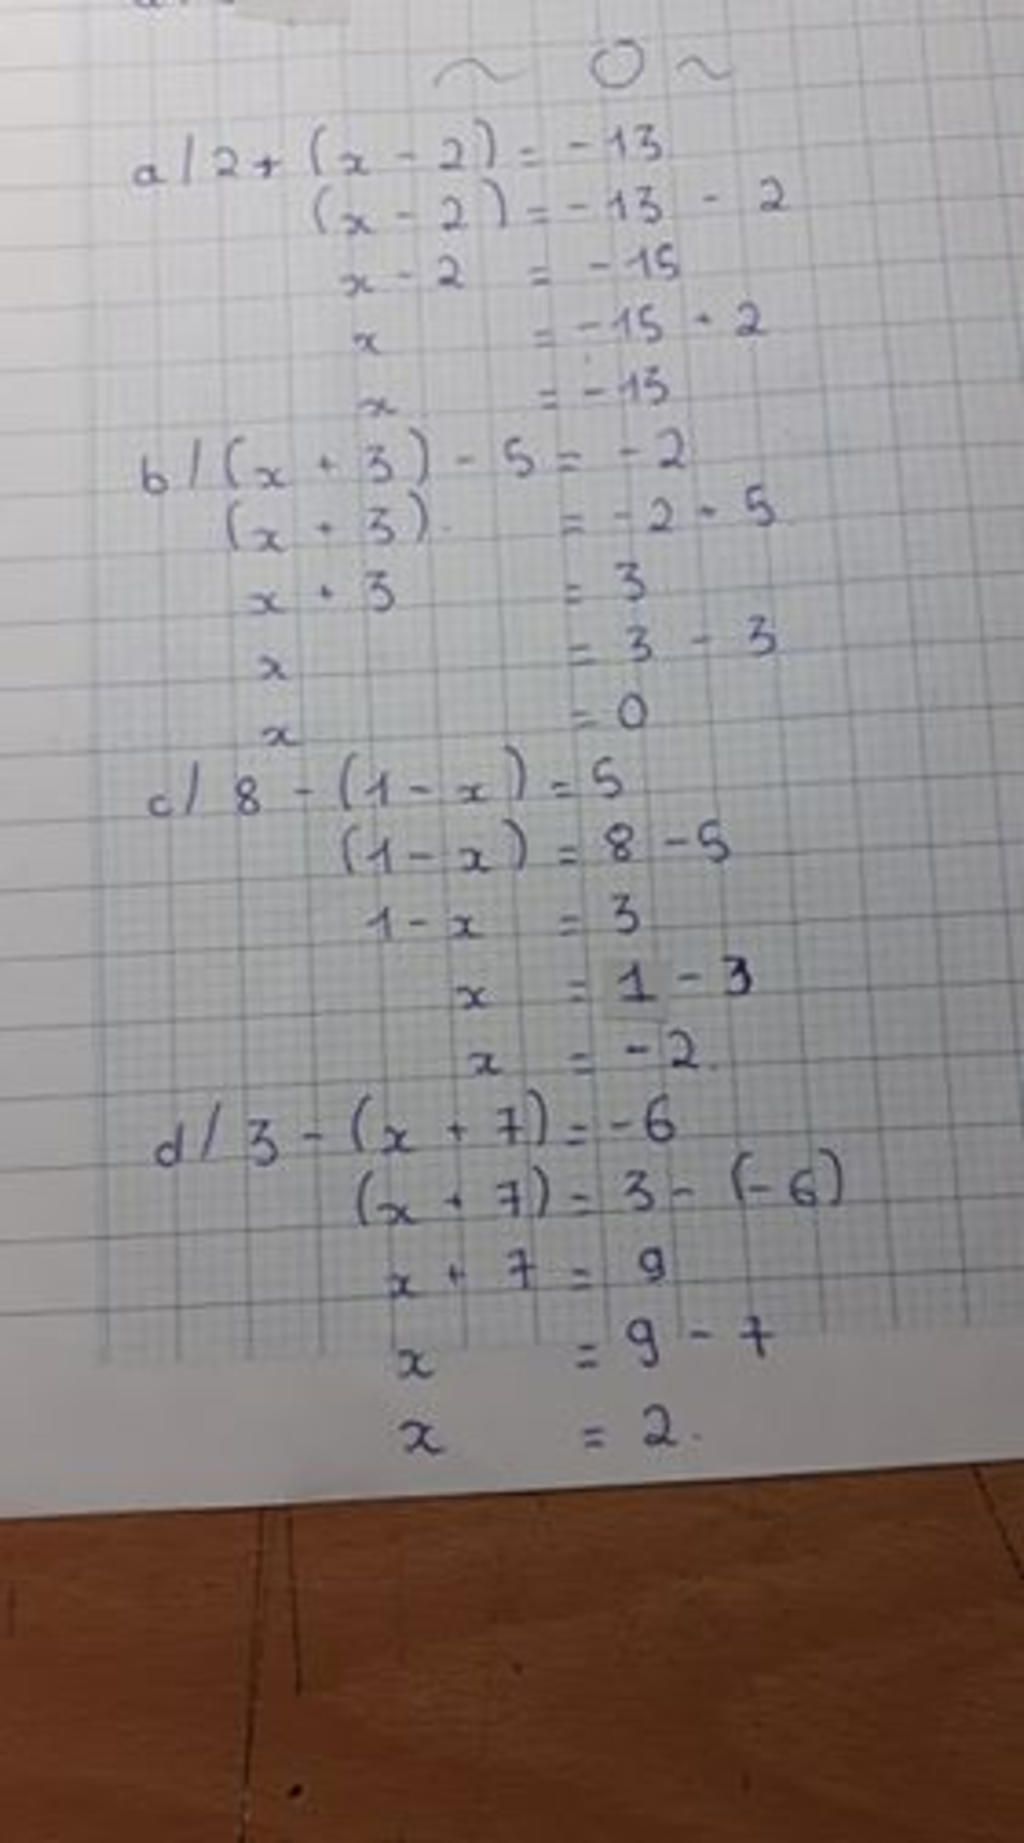 ~ 0 ~
a / 2 + (x - 2) = - 13
(x - 2) = - 13 - 2
x - 2 = - 15
x = - 15 + 2
x = - 13
b / (x + 3) - 5 = - 2
(x + 3) = - 2 + 5
x + 3 = 3
x = 3 - 3
x = 0
c / 8 - (1 - x) = 5
(1 - x) = 8 - 5
1 - x = 3
x = 1 - 3
x = - 2.
d / 3 - (x + 7) = - 6
(x + 7) = 3 - (- 6)
x + 7 = 9
x = 9 - 7
x = 2.